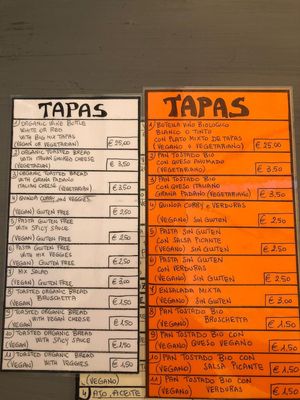 TAPAS
1) ORGANIC WINE BOTTLE
WHITE OR RED
WITH BIG MIX TAPAS
(VEGAN OR VEGETARIAN) € 25,00
2) ORGANIC TOASTED BREAD
WITH ITALIAN SMOKED CHEESE
(VEGETARIAN) € 3,50
3) ORGANIC TOASTED BREAD
WITH GRANA PADANO
ITALIAN CHEESE (VEGETARIAN) € 3,50
4) QUINOA CURRY AND VEGGIES
(VEGAN) GLUTEN FREE € 2,50
5) PASTA GLUTEN FREE
WITH SPICY SAUCE
(VEGAN) GLUTEN FREE € 2,50
6) PASTA GLUTEN FREE
WITH MIX VEGGIES
(VEGAN) GLUTEN FREE € 2,50
7) MIX SALAD
(VEGAN) GLUTEN FREE € 3,00
8) TOASTED ORGANIC BREAD
BRUSCHETTA
(VEGAN) € 1,50
9) TOASTED ORGANIC BREAD
WITH VEGAN CHEESE
(VEGAN) € 1,50
10) TOASTED ORGANIC BREAD
WITH SPICY SAUCE
(VEGAN) € 1,50
11) TOASTED ORGANIC BREAD
WITH VEGGIES
(VEGAN) € 1,50
TAPAS
1) BOTELLA VINO BIOLOGICO
BLANCO O TINTO
CON PLATO MIXTO DE TAPAS
(VEGANO O VEGETARIANO) € 25,00
2) PAN TOSTADO BIO
CON QUESO AHUMADO
(VEGETARIANO) € 3,50
3) PAN TOSTADO BIO
CON QUESO ITALIANO
GRANA PADANO (VEGETARIANO) € 3,50
4) QUINOA CURRY E VERDURAS
(VEGANO) SIN GLUTEN € 2,50
5) PASTA SIN GLUTEN
CON SALSA PICANTE
(VEGANO) SIN GLUTEN € 2,50
6) PASTA SIN GLUTEN
CON VERDURAS
(VEGANO) SIN GLUTEN € 2,50
7) ENSALADA MIXTA
(VEGANO) SIN GLUTEN € 3,00
8) PAN TOSTADO BIO
BRUSCHETTA
(VEGANO) € 1,50
9) PAN TOSTADO BIO CON
QUESO VEGANO
(VEGANO) € 1,50
10) PAN TOSTADO BIO CON
SALSA PICANTE
(VEGANO) € 1,50
11) PAN TOSTADO BIO CON
VERDURAS
(VEGANO) € 1,50
(VEGANO)
AJO, ACEITE